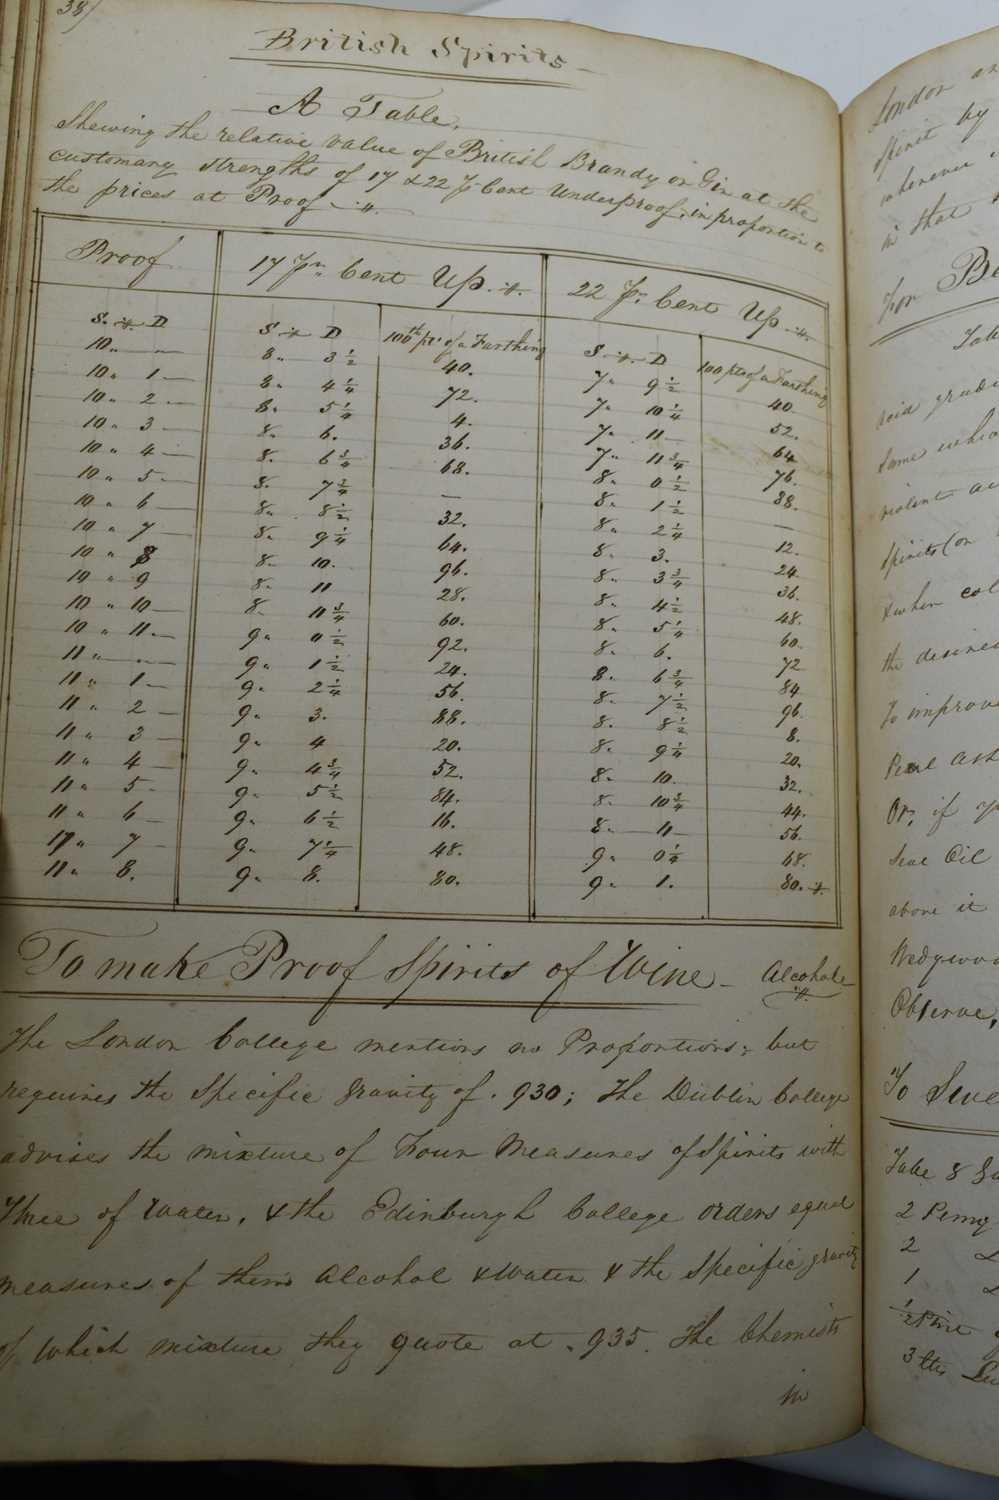 38)
British Spirits –
A Table,
Shewing the relative value of British Brandy or Gin at the
customary strengths of 17 & 22 pr Cent Underproof, in proportion to
the prices at Proof
Proof 17 pr Cent Up. 22 pr Cent Up.
S. D S D 100th pt of a Farthing S D 100 pts of a Farthing
10 " " 8 " 3½ 40. 7 " 9½ 40
10 " 1 — 8 " 4¼ 72. 7 " 10¼ 52.
10 " 2 — 8 " 5¼ 4. 7 " 11 — 64
10 " 3 — 8. 6. 36. 7 " 11¾ 76.
10 " 4 — 8. 6¾ 68. 8 " 0½ 88.
10 " 5 — 8. 7¾ — 8 " 1½ —
10 " 6 — 8 " 8½ 32. 8 " 2¼ 12.
10 " 7 — 8 " 9¼ 64. 8 " 3. 24.
10 " 8 8 " 10. 96. 8 " 3¾ 36.
10 " 9 8 " 11 28. 8 " 4½ 48.
10 " 10 — 8 " 11¾ 60. 8 " 5¼ 60.
10 " 11 — 9 " 0½ 92. 8 " 6. 72
11 " — " — 9 " 1½ 24. 8 " 6¾ 84
11 " 1 — 9 " 2¼ 56. 8 " 7½ 96.
11 " 2 — 9 " 3. 88. 8 " 8½ 8.
11 " 3 — 9 " 4 20. 8 " 9¼ 20.
11 " 4 — 9 " 4¾ 52. 8 " 10. 32.
11 " 5 — 9 " 5½ 84. 8 " 10¾ 44.
11 " 6 — 9 " 6½ 16. 8 " — 11 — 56.
11 " 7 — 9 " 7¼ 48. 9 " 0¼ 68.
11 " 8. 9 " 8. 80. 9 " 1. 80.
To make Proof Spirits of Wine – Alcohole
The London College mentions no Proportions; but
requires the Specific gravity of .930; The Dublin College
advises the mixture of Four Measures of Spirits with
Three of Water, & the Edinburgh College orders equal
measures of them Alcohol & Water & the Specific gravity
of which mixture they quote at .935. The Chemists
in
London
Spirit by
wherever
in that
For
acid
Same
violent
Spirits (or
& when
the desired
To improve
Pearl Ash
Or, if
Oil
above it
Observe,
To
Take 8
2
2
1
3